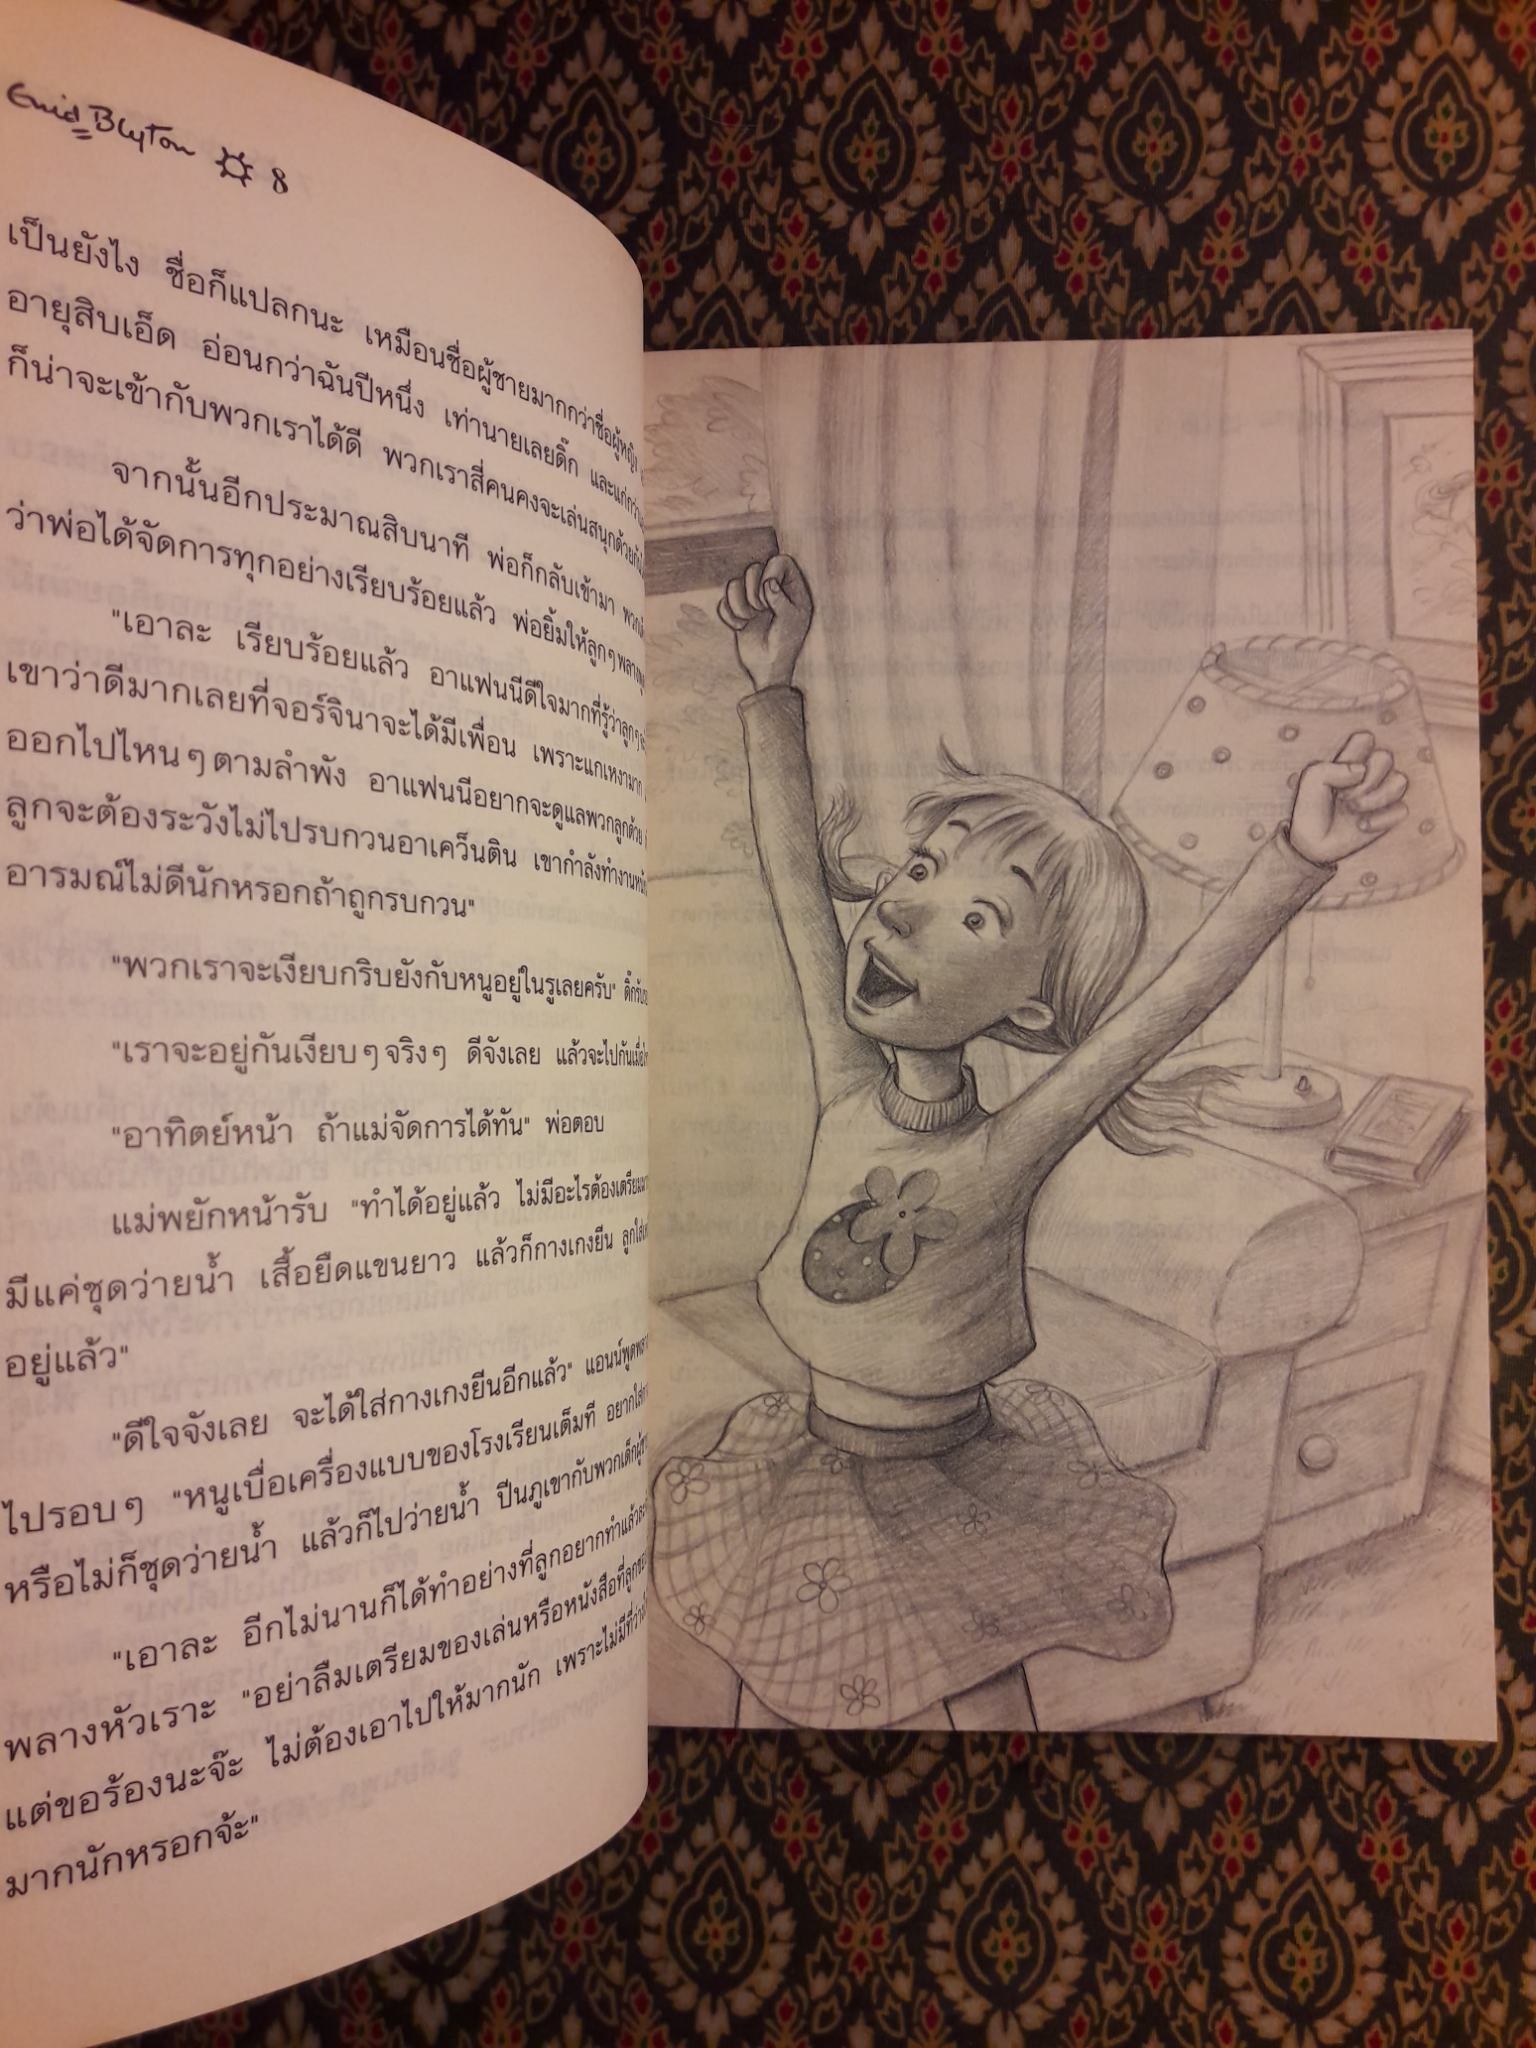 Enid Blyton 8
เป็นยังไง ชื่อก็แปลกนะ เหมือนชื่อผู้ชายมากกว่าชื่อผู้หญิง
อายุสิบเอ็ด อ่อนกว่าฉันปีหนึ่ง เท่านายเลยดิ๊ก และแก่กว่า
ก็น่าจะเข้ากับพวกเราได้ดี พวกเราสี่คนคงจะเล่นสนุกด้วยกัน
จากนั้นอีกประมาณสิบนาที พ่อก็กลับเข้ามา
ว่าพ่อได้จัดการทุกอย่างเรียบร้อยแล้ว พ่อยิ้มให้ลูกๆ พลาง
"เอาละ เรียบร้อยแล้ว อาแฟนนีดีใจมากที่รู้ว่าลูกๆ
เขาว่าดีมากเลยที่จอร์จินาจะได้มีเพื่อน เพราะแกเหงามาก
ออกไปไหนๆ ตามลำพัง อาแฟนนีอยากจะดูแลพวกลูกด้วย
ลูกจะต้องระวังไม่ไปรบกวนอาเคว็นติน เขากำลังทำงานหนัก
อารมณ์ไม่ดีนักหรอกถ้าถูกรบกวน"
"พวกเราจะเงียบกริบยังกับหนูอยู่ในรูเลยครับ" ดิ๊กรับ
"เราจะอยู่กันเงียบๆ จริงๆ ดีจังเลย แล้วจะไปกันเมื่อ
"อาทิตย์หน้า ถ้าแม่จัดการได้ทัน" พ่อตอบ
แม่พยักหน้ารับ "ทำได้อยู่แล้ว ไม่มีอะไรต้องเตรียม
มีแค่ชุดว่ายน้ำ เสื้อยืดแขนยาว แล้วก็กางเกงยีน ลูกใส่
อยู่แล้ว"
"ดีใจจังเลย จะได้ใส่กางเกงยีนอีกแล้ว" แอนน์พูดพลาง
ไปรอบๆ "หนูเบื่อเครื่องแบบของโรงเรียนเต็มที อยากใส่
หรือไม่ก็ชุดว่ายน้ำ แล้วก็ไปว่ายน้ำ ปีนภูเขากับพวกเด็กผู้ชาย
"เอาละ อีกไม่นานก็ได้ทำอย่างที่ลูกอยากทำแล้วละ
พลางหัวเราะ "อย่าลืมเตรียมของเล่นหรือหนังสือที่ลูก
แต่ขอร้องนะจ๊ะ ไม่ต้องเอาไปให้มากนัก เพราะไม่มีที่ว่าง
มากนักหรอกจ้ะ"